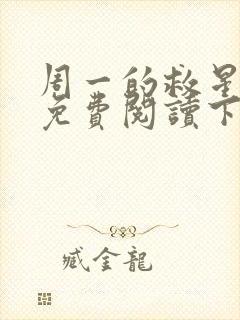 周一的救星
免費閱讀下
臧金龍